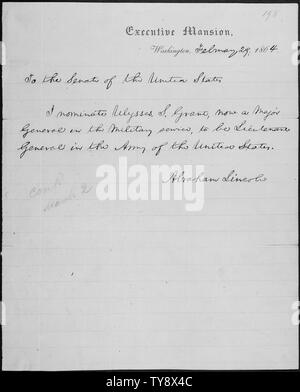 198
Executive Mansion,
Washington, February 29, 1864
To the Senate of the United States
I nominate Ulysses S. Grant, now a Major
General in the Military service, to be Lieutenant
General in the Army of the United States.
Abraham Lincoln
March 2
alamy
alamy
Image ID: TY8X4C
www.alamy.com